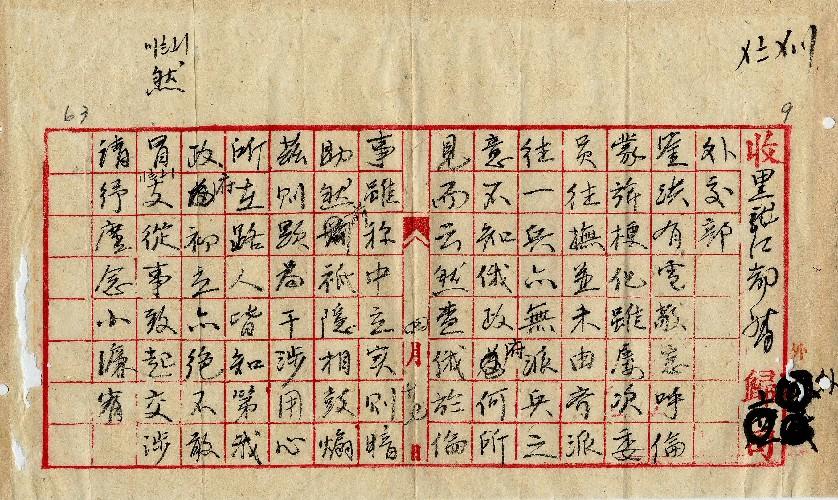 9
收黑龍江都督
外交部
鑒洪有電敬悉呼倫
蒙旗梗化雖屢次委
員往撫並未由省派
往一兵亦無派兵之
意不知俄政府何所
見而云然查俄於倫
月 日
事雖稱中立實則暗
助然祇隱相鼓煽
茲則顯為干涉用心
所在路人皆知第我
政府初意亦絕不敢
冒 從事致起交涉
請紓廑念小濂宥
然
63